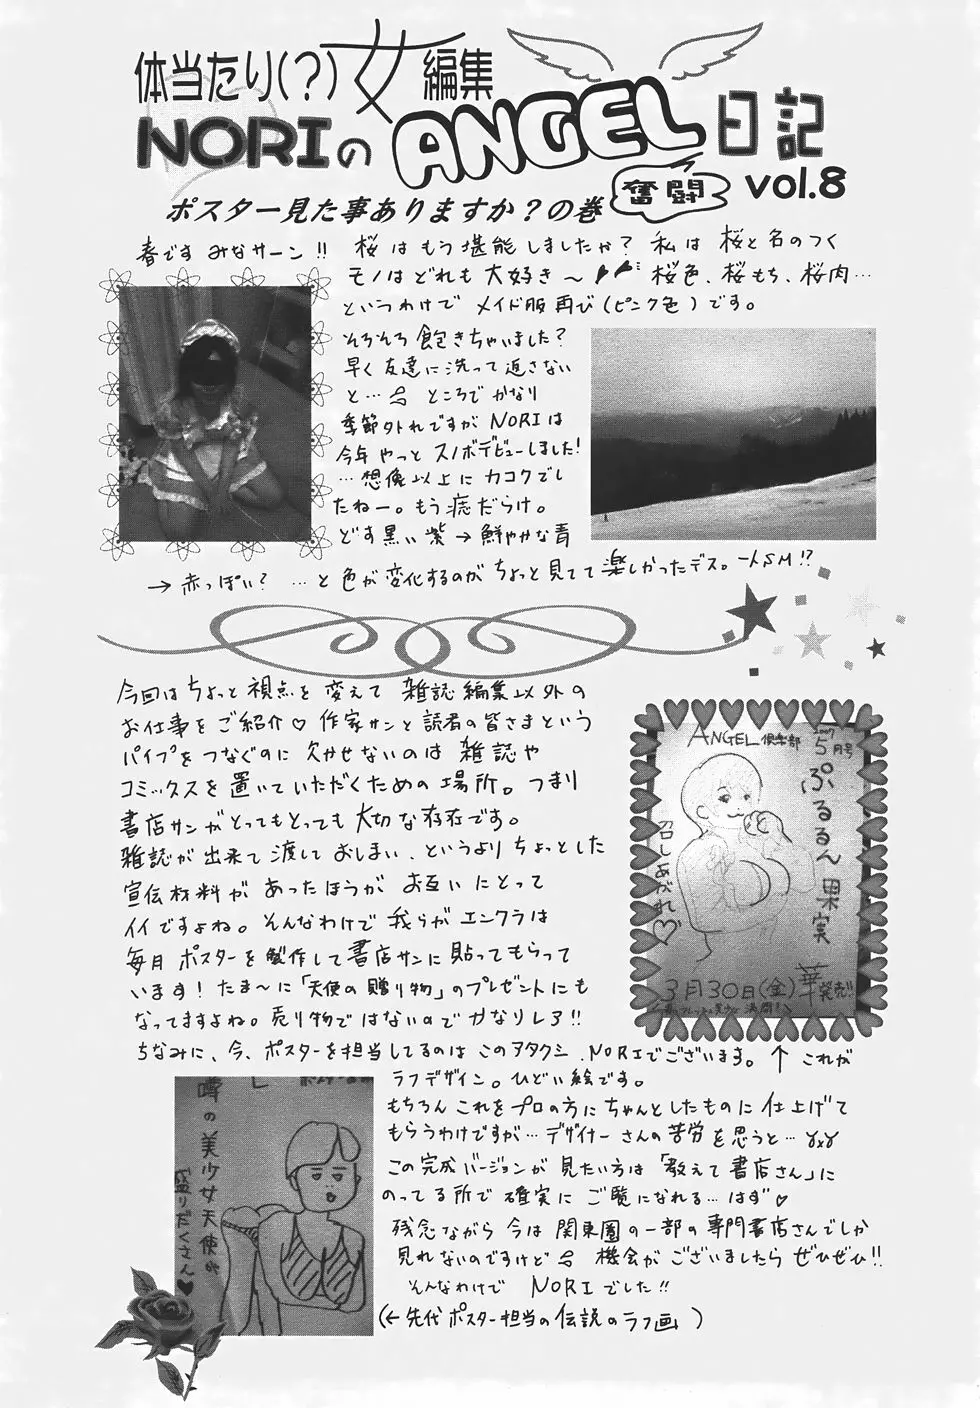 体当たり(?)女編集
NORIのANGEL日記
奮闘
vol.8
ポスター見た事ありますか?の巻
春です みなサーン!! 桜はもう堪能しましたか? 私は 桜と名のつく
モノはどれも大好き〜 桜色、桜もち、桜肉…
というわけで メイド服再び(ピンク色)です。
そろそろ飽きちゃいました?
早く友達に洗って返さない
と… ところでかなり
季節外れですが NORIは
今年やっと スノボデビューしました!
…想像以上に カコクでし
たねー。もう痣だらけ。
どす黒い紫→鮮やかな青
→赤っぽい? …と色が変化するのがちょっと見てて楽しかったデス。一人SM!?
今回はちょっと視点を変えて 雑誌編集以外の
お仕事をご紹介♡ 作家サンと読者の皆さまという
パイプをつなぐのに欠かせないのは 雑誌や
コミックスを置いていただくための場所。つまり
書店サンがとってもとっても大切な存在です。
雑誌が出来て渡しておしまい、というよりちょっとした
宣伝材料があったほうが お互いにとって
イイですよね。そんなわけで我らがエンクラは
毎月ポスターを製作して書店サンに貼ってもらって
います! たま〜に「天使の贈り物」のプレゼントにも
なってますよね。売り物ではないのでかなりレア!!
ちなみに、今、ポスターを担当してるのはこのアタクシ、NORIでございます。↑これが
ラフデザイン。ひどい絵です。
もちろんこれをプロの方にちゃんとしたものに仕上げて
もらうわけですが…デザイナーさんの苦労を思うと…
この完成バージョンが見たい方は「教えて書店さん」に
のってる所で確実にご覧になれる…はず♡
残念ながら今は関東圏の一部の専門書店さんでしか
見れないのですけど 機会がございましたらぜひぜひ!!
そんなわけで NORIでした!!
(←先代ポスター担当の伝説のラフ画)
ANGEL倶楽部
5月号
ぷるるん果実
召しあがれ♡
3月30日(金)発売!!
噂の美少女天使が
盛りだくさん♥